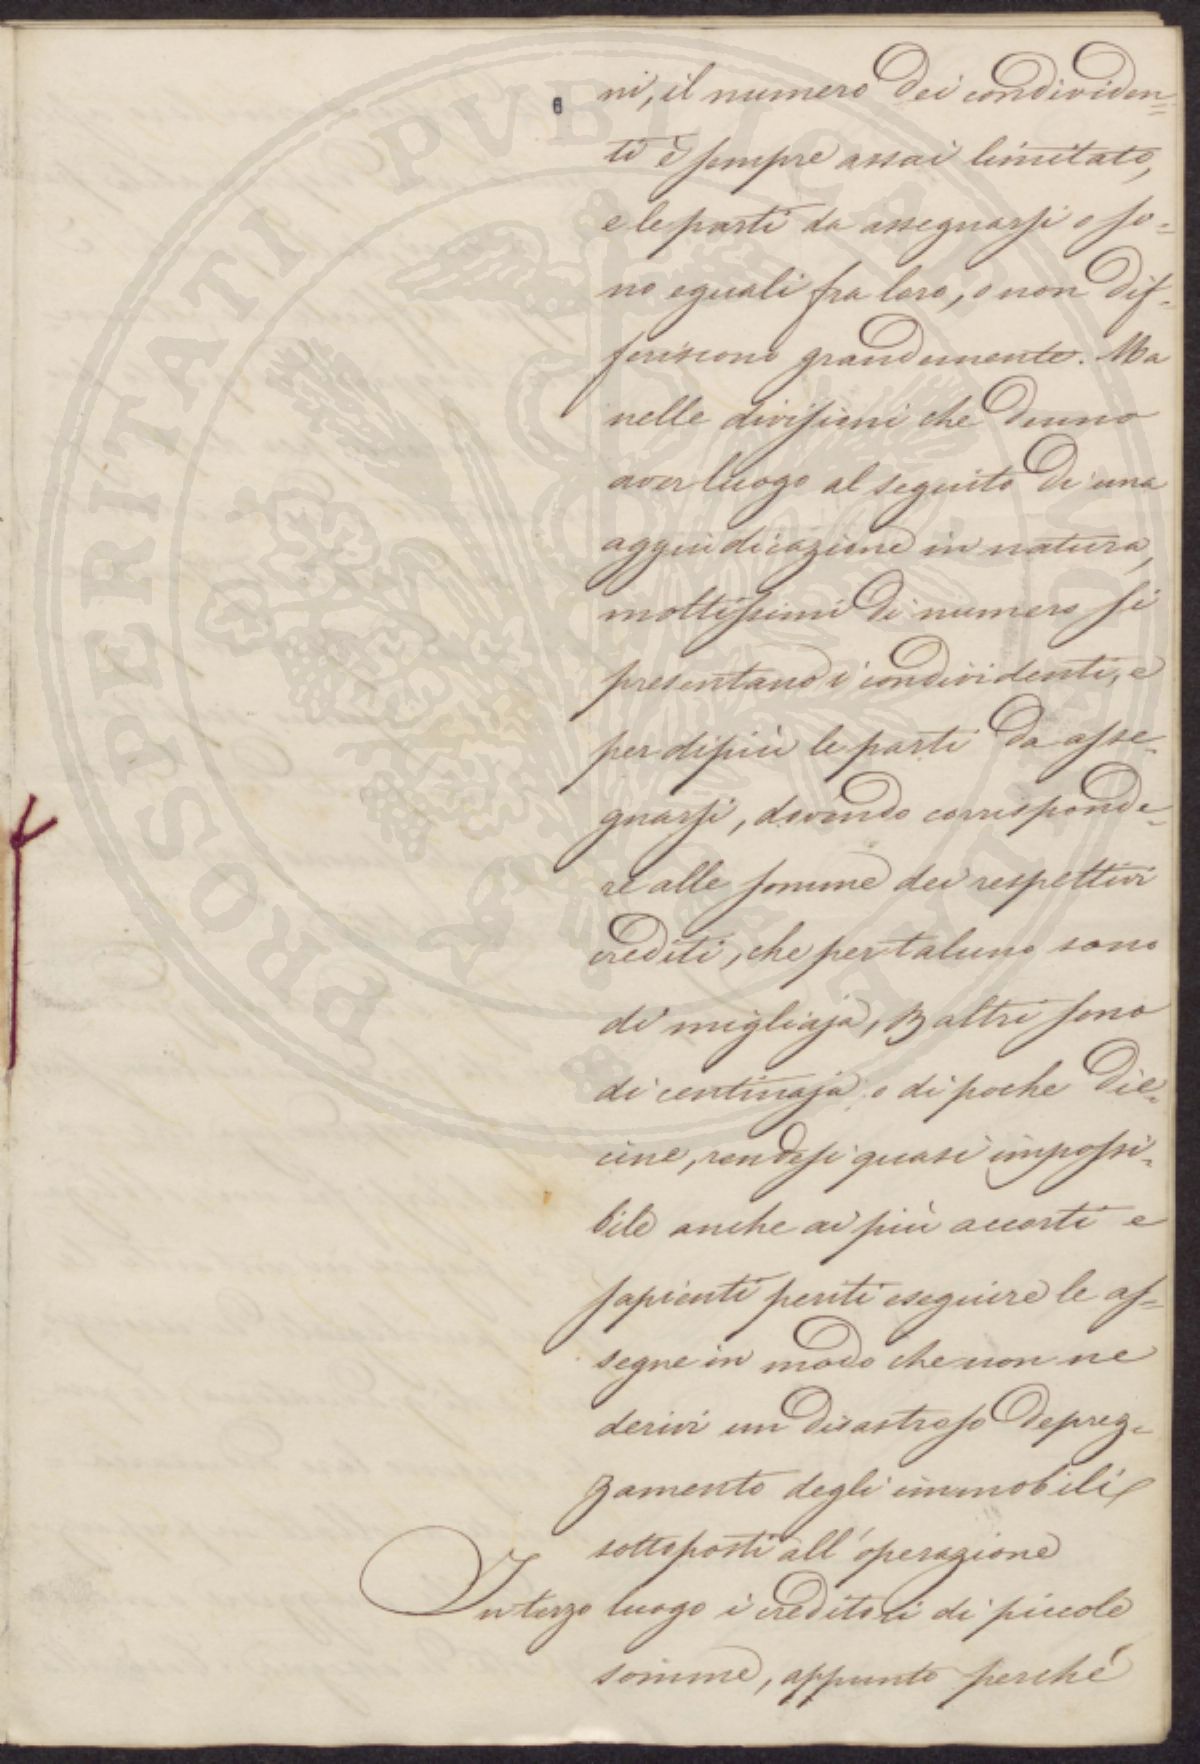 6
ni, il numero dei condividen=
ti è sempre assai limitato,
e le parti da assegnarsi o so=
no eguali fra loro, o non dif=
feriscono grandemente. Ma
nelle divisioni che denno
aver luogo al seguito di una
aggiudicazione in natura,
moltissimi di numero si
presentano i condividenti, e
per dipiù le parti da asse=
gnarsi, dovendo corrisponde=
re alle somme dei respettivi
crediti, che per taluno sono
di migliaja, per altri sono
di centinaja o di poche die=
cine, rendesi quasi impossi=
bile anche ai più accorti e
sapienti periti eseguire le as=
segne in modo che non ne
derivi un disastroso deprez=
zamento degli immobili
sottoposti all'operazione
In terzo luogo i creditori di piccole
somme, appunto perché
PROSPERITATI PVBLICAE